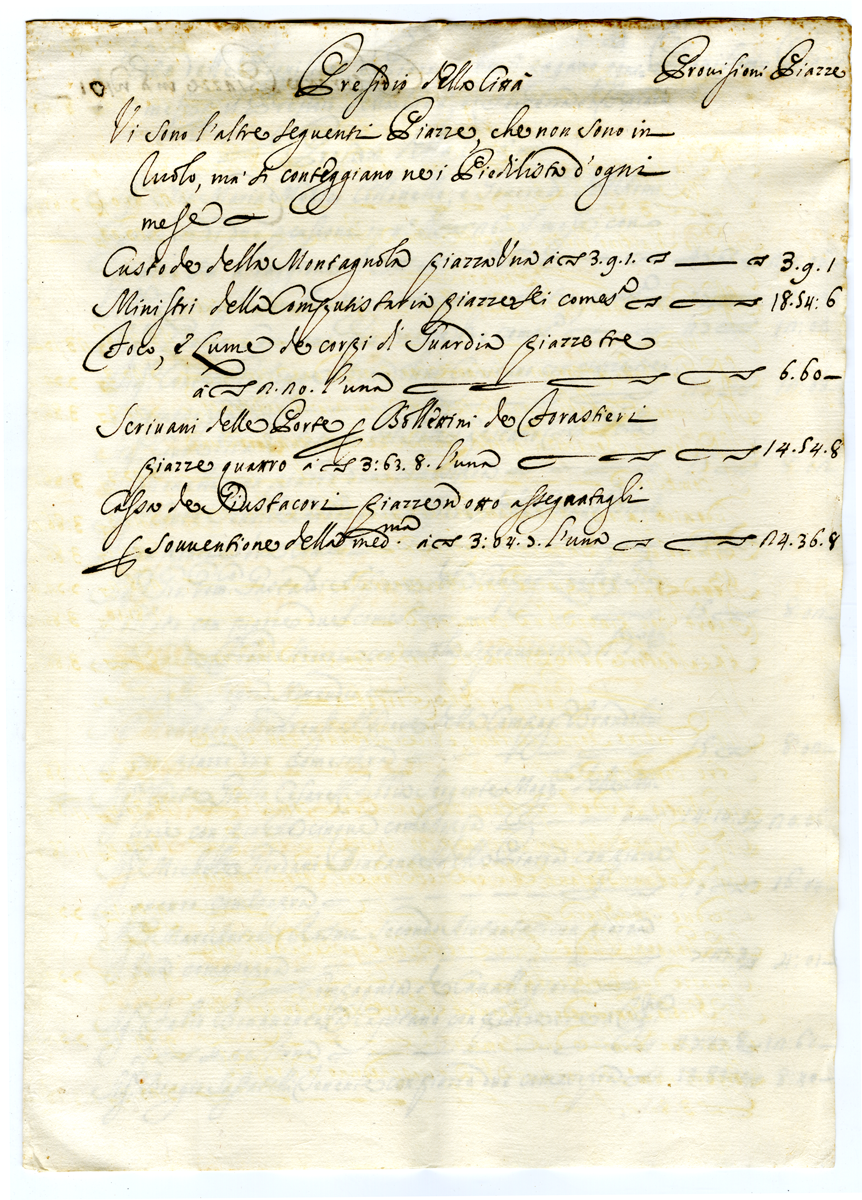 Presidio della Città Provisioni Piazze
Vi sono l'altre seguenti Piazze, che non sono in
Ruolo, ma si conteggiano ne i Piedilista d'ogni
mese
Custode della Montagnola piazza Una a 3.9.1. 3.9.1
Ministri della Computistaria piazze sei come sa 18.54:6
Foco, e Lume de corpi di Guardia piazze tre
a 2.20. l'una 6.60
Scrivani delle Porte Bollettini de Forastieri
piazze quattro a 3:63.8. l'una 14.54.8
Cassa de Giustacori piazze otto assegnatagli
Souventione della medma. a 3:04. l'una 24.36.8